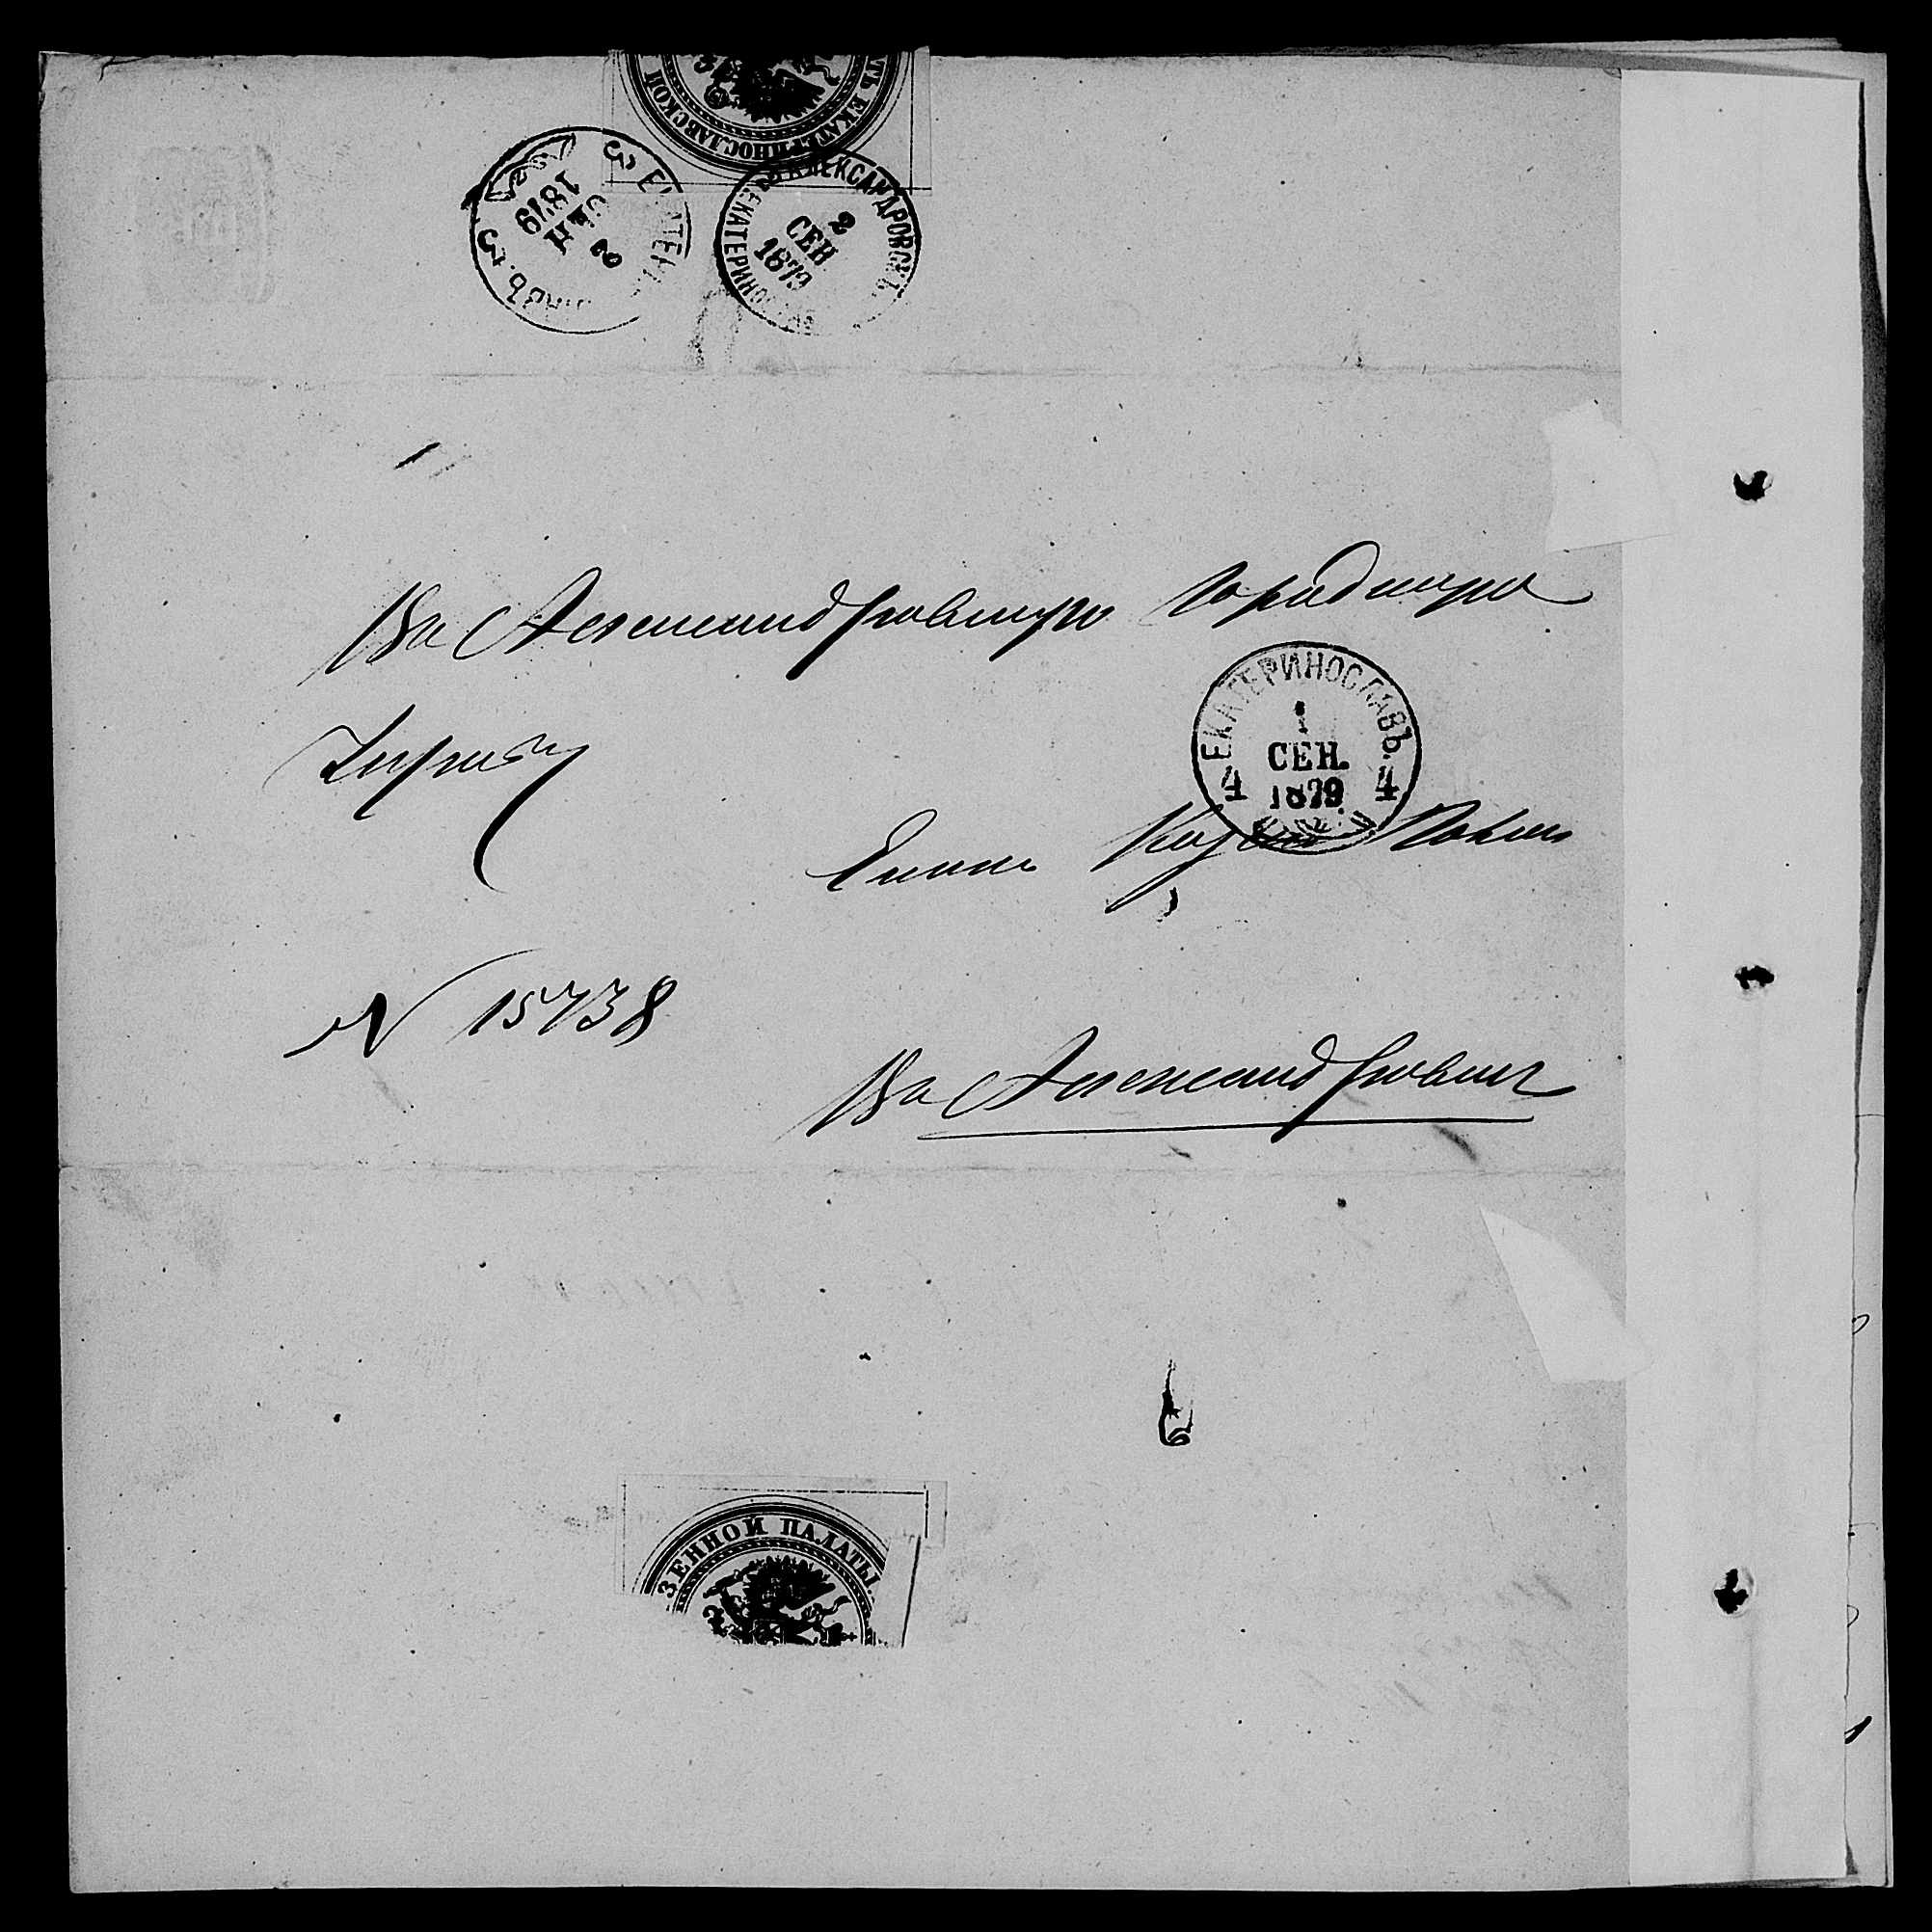 ТЬ ЕКАТЕРИНОСЛАВСКОЙ
3 ЕКАТЕРИ ЛАВЪ. 3
2
СЕН
1879
АЛЕКСАНДРОВСКЪ ЕКАТЕРИНОС
2
СЕН.
1879
Въ Александровскую Городскую
Управу
ЕКАТЕРИНОСЛАВЪ.
4 4
1
СЕН.
1879
Екат. Казен. Палат
N 15738
Въ Александровскъ
ЗЕННОЙ ПАЛАТЫ.